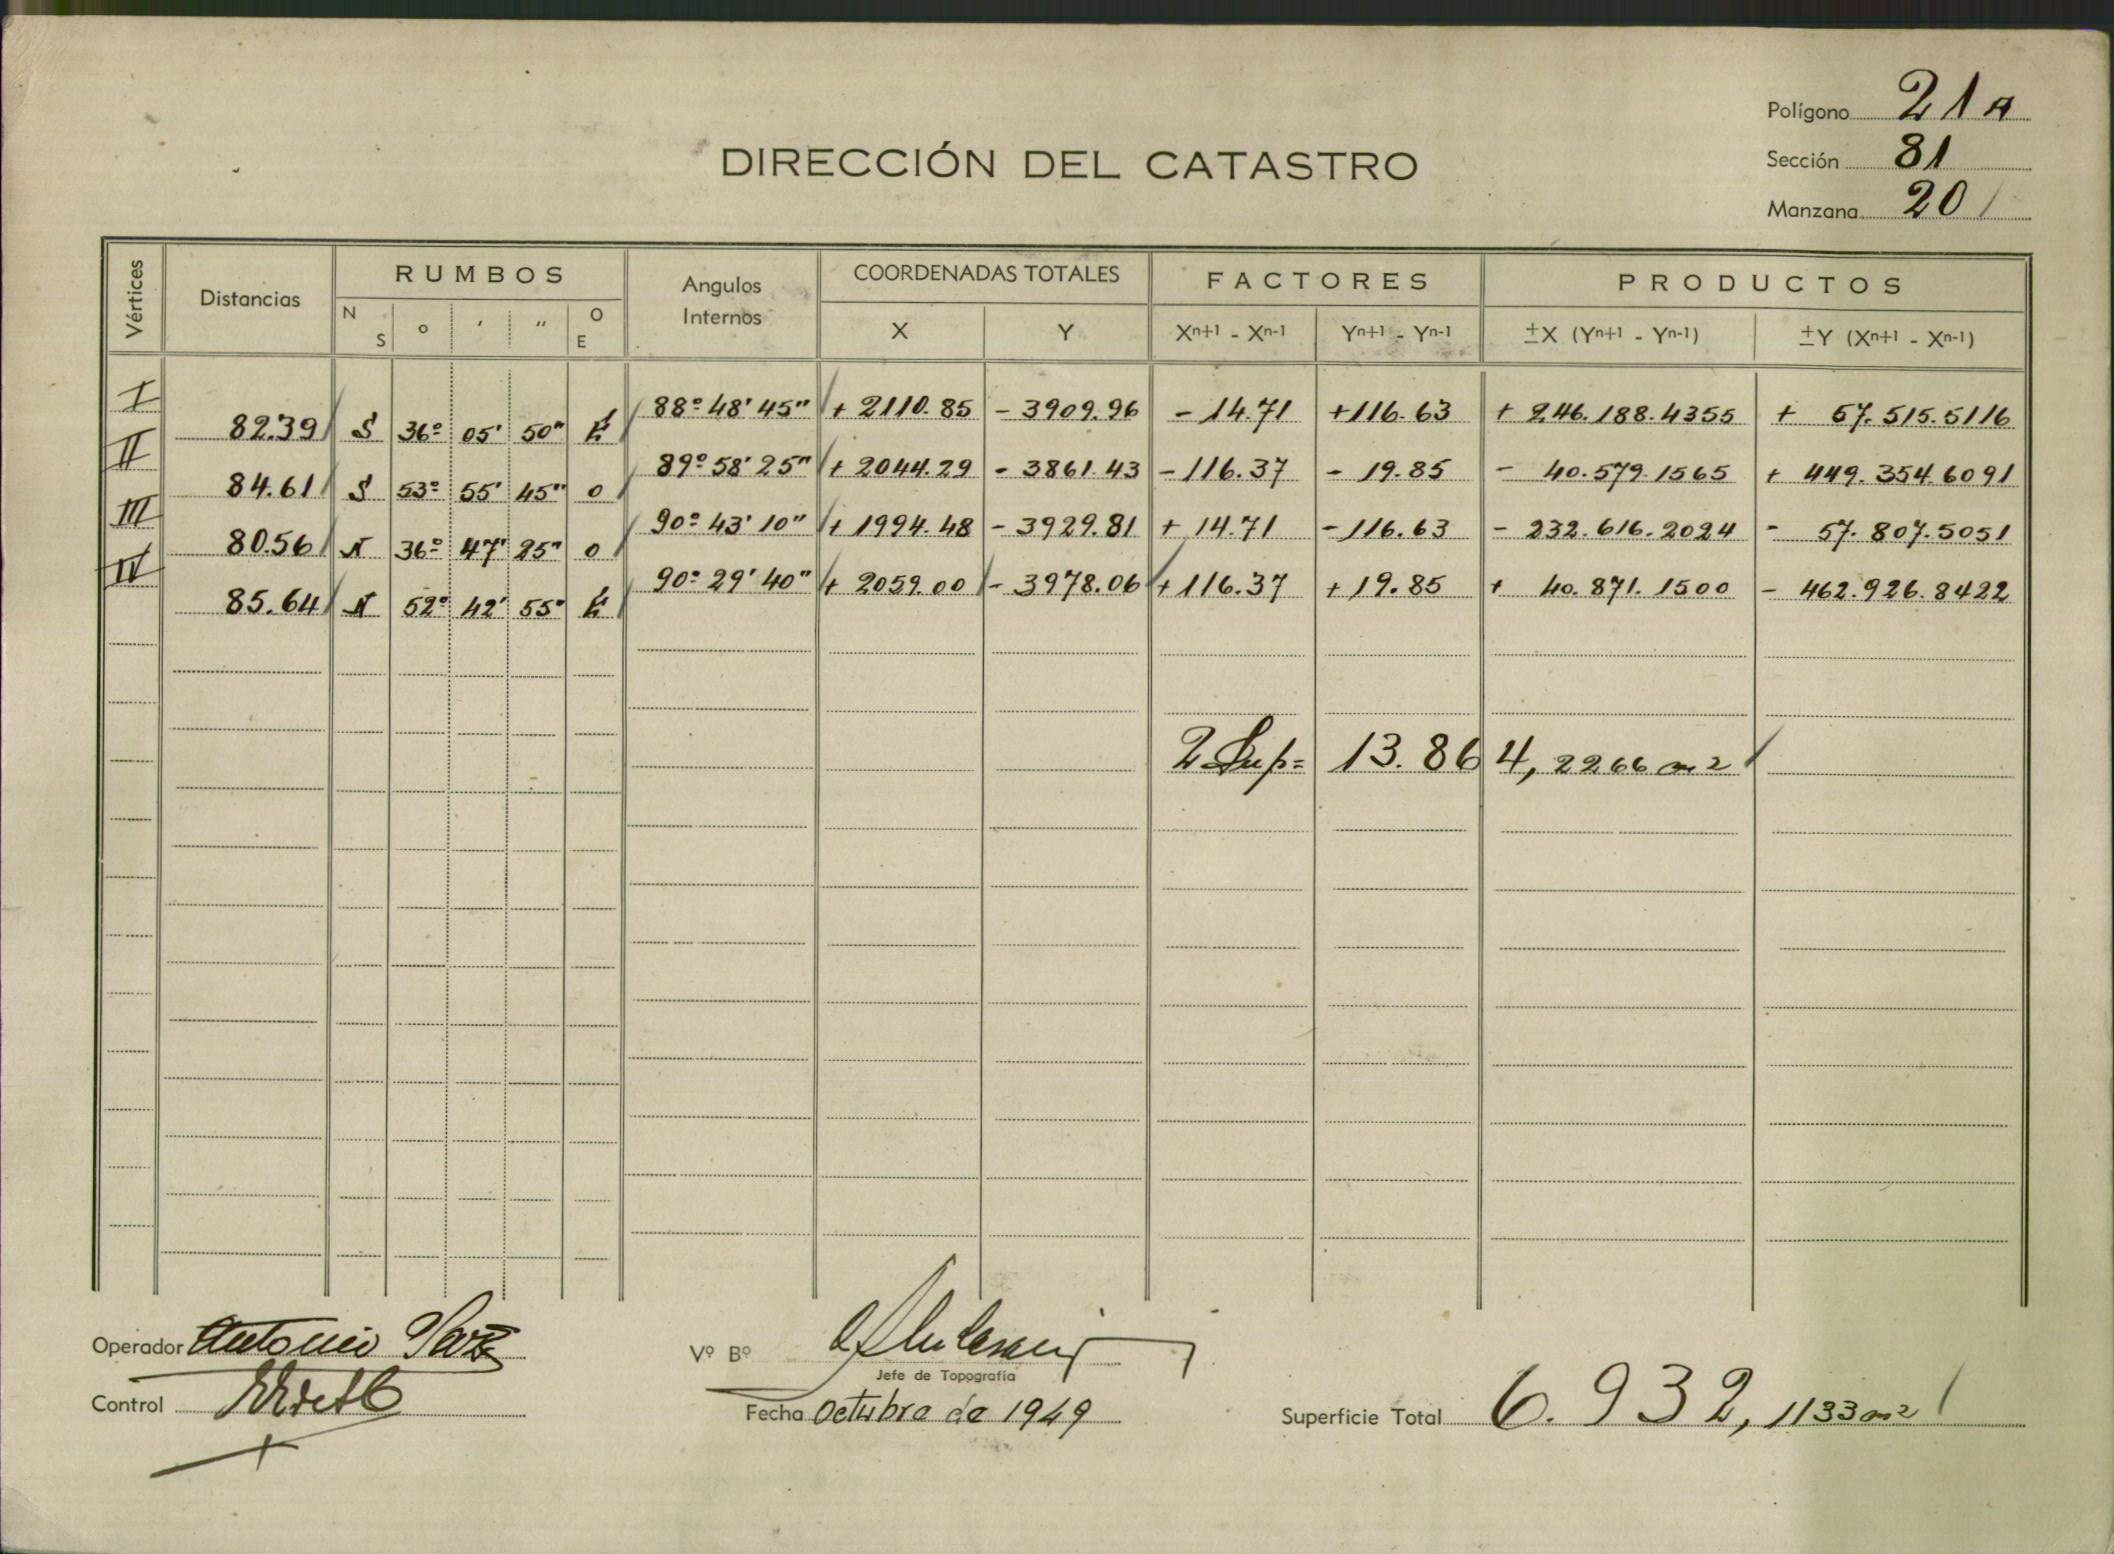 Polígono 21 A
DIRECCIÓN DEL CATASTRO
Sección 81
Manzana 20
Vértices Distancias RUMBOS Angulos Internos COORDENADAS TOTALES FACTORES PRODUCTOS
N S o ' " O E X Y Xn+1 - Xn-1 Yn+1 - Yn-1 ±X (Yn+1 - Yn-1) ±Y (Xn+1 - Xn-1)
I 88º 48' 45" + 2110.85 - 3909.96 - 14.71 +116.63 + 246.188.4355 + 57.515.5116
82.39 S 36º 05' 50" E
II 89º 58' 25" + 2044.29 - 3861.43 - 116.37 - 19.85 - 40.579.1565 + 449.354.6091
84.61 S 53º 55' 45" O
III 90º 43' 10" + 1994.48 - 3929.81 + 14.71 - 116.63 - 232.616.2024 - 57.807.5051
80.56 N 36º 47' 25" O
IV 90º 29' 40" + 2059.00 - 3978.06 + 116.37 + 19.85 + 40.871.1500 - 462.926.8422
85.64 N 52º 42' 55" E
2 Sup= 13.864,2266 m2
Operador Antonio
Vº Bº
Jefe de Topografía
Control
Fecha Octubre de 1949
Superficie Total 6.932,1133 m2